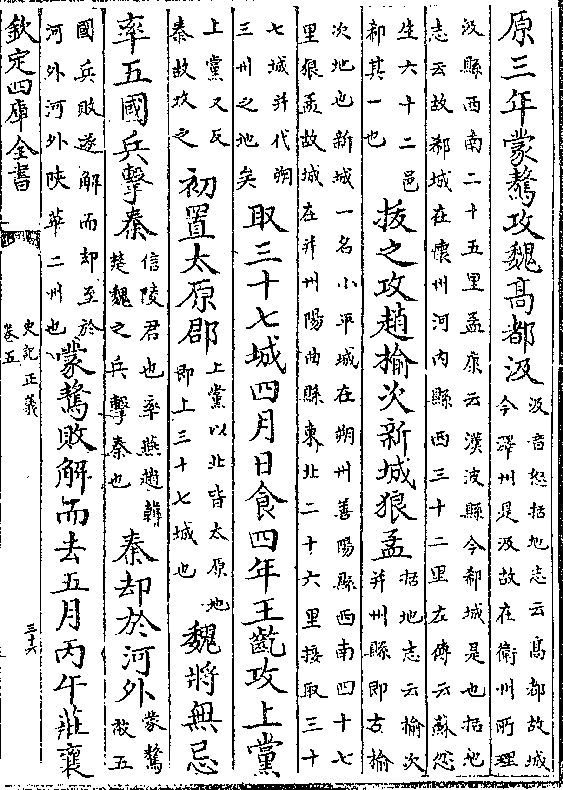 原三年蒙驁攻魏高都汲汲音急括地志云高都故城
今澤州是汲故在衛州所理
汲縣西南二十五里孟康云漢波縣今郗城是也括地
志云故郗城在懷州河内縣西三十二里左傳云蘇忿
生六十二邑
郗其一也拔之攻趙榆次新城狼孟括地志云榆次
并州縣即古榆
次地也新城一名小平城在朔州善陽縣西南四十七
里狼孟故城在并州陽曲縣東北二十六里接取三十
七城并代朔
三州之地矣取三十七城四月日食四年王齕攻上黨
上黨又反
秦故攻之初置太原郡上黨以北皆太原地
即上三十七城也魏將無忌
率五國兵擊秦信陵君也率燕趙韓
楚魏之兵擊秦也秦却於河外蒙驁
敗五
國兵敗遂解而却至於
河外河外陜華二州也蒙驁敗解而去五月丙午莊襄
欽定四庫全書
史記正義
卷五
三十六